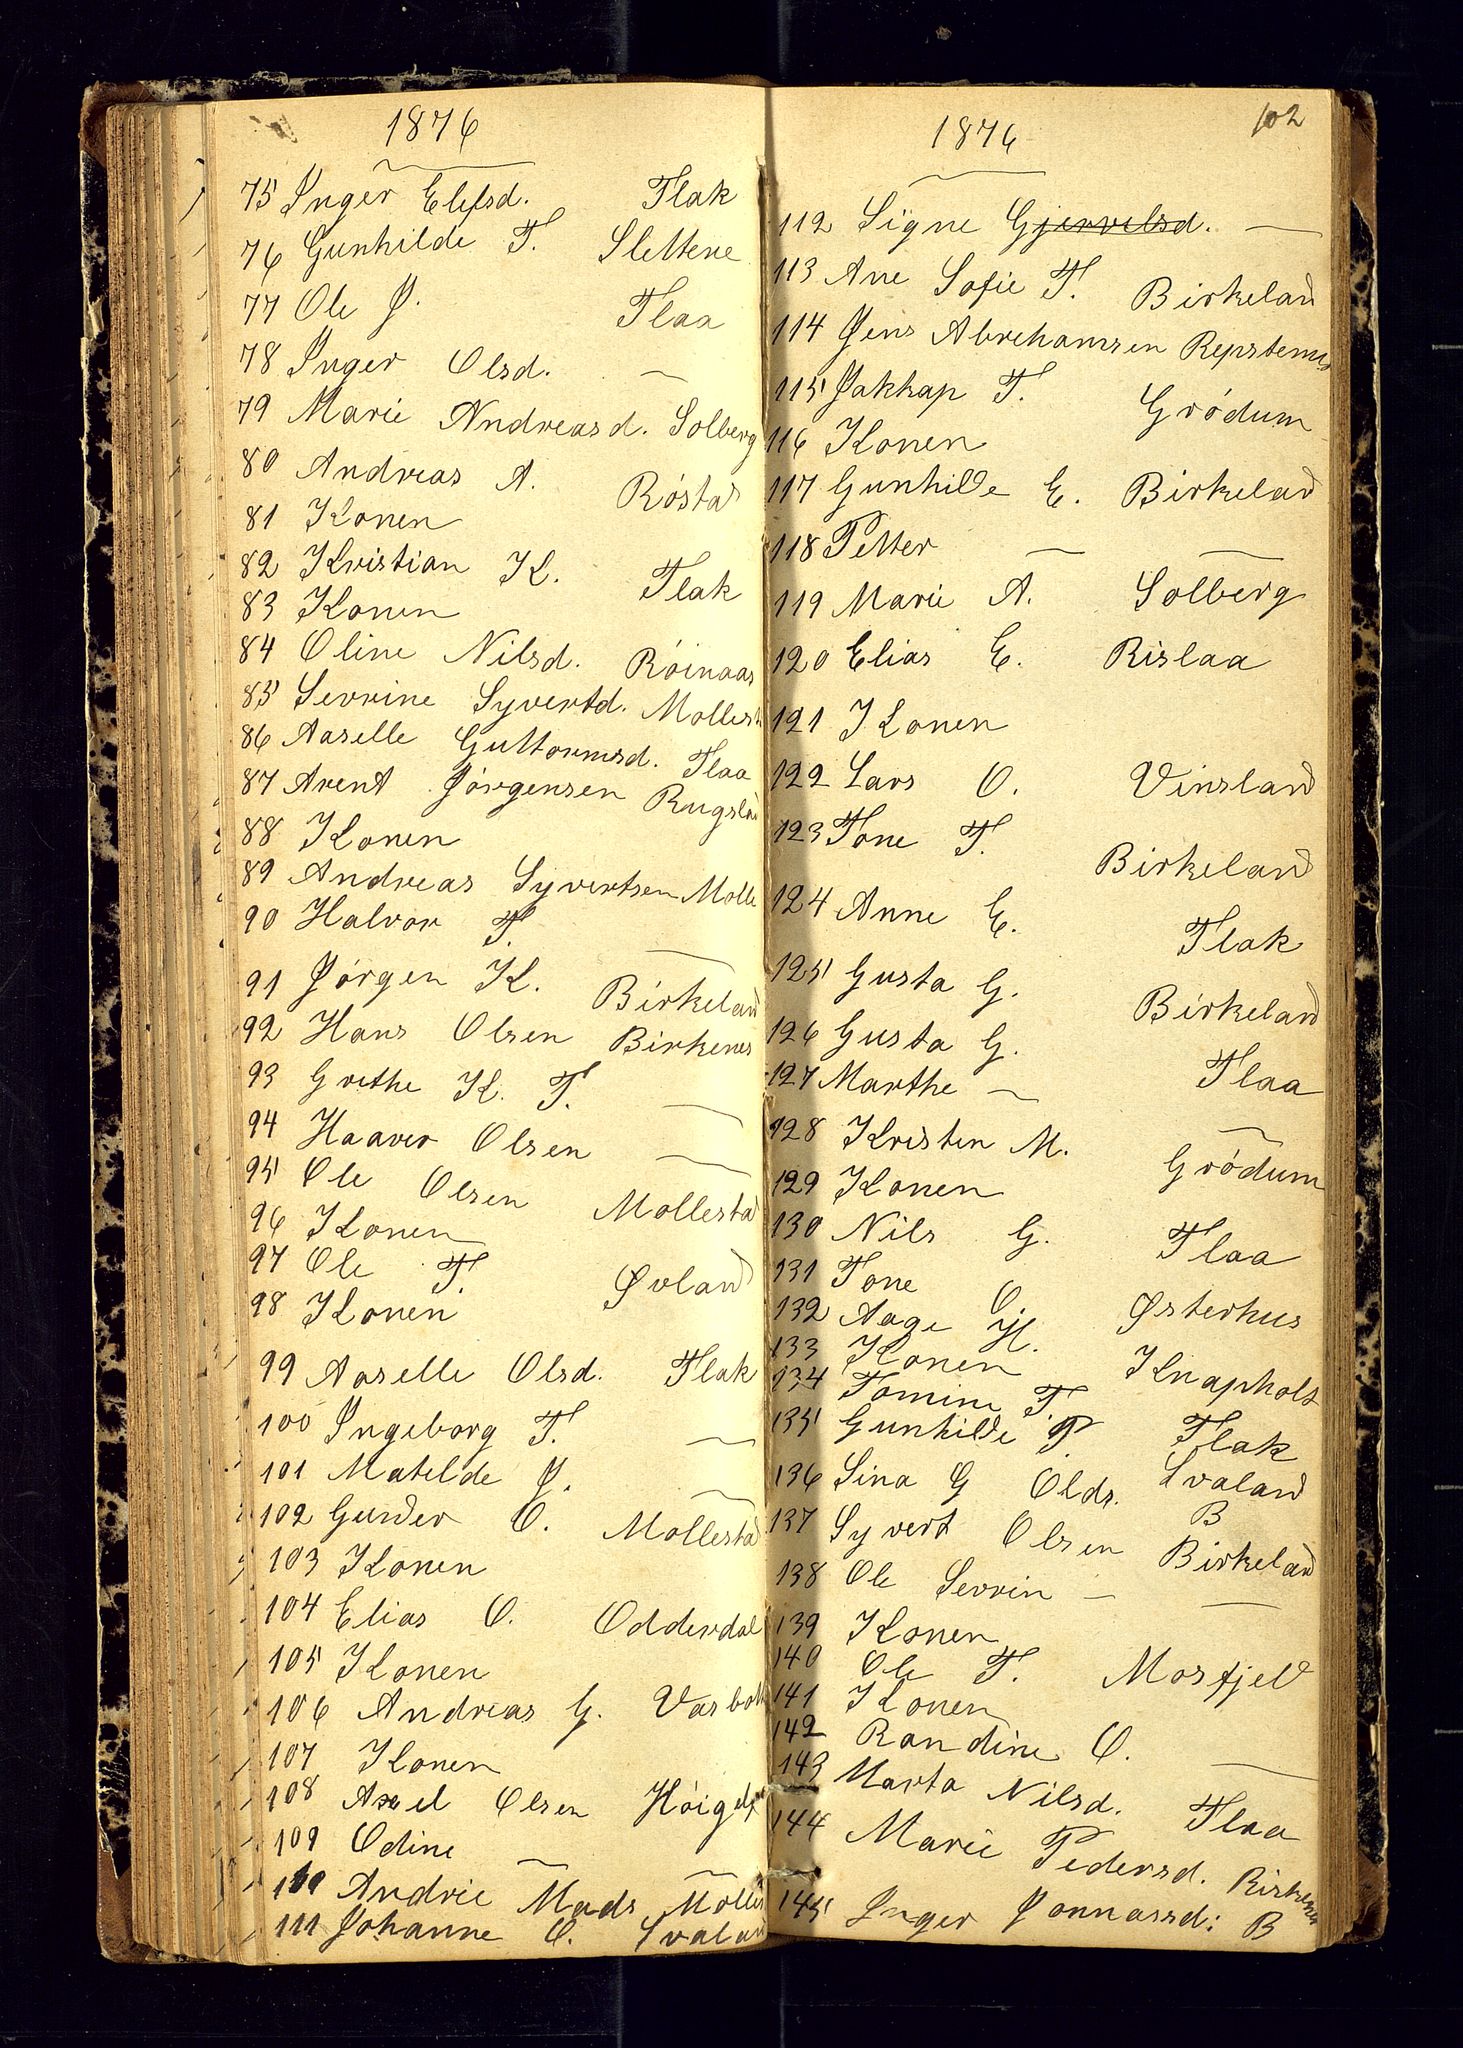 1876
75 Inger Elefsd. Flak
76 Gunhilde T. Slettene
77 Ole J. Flaa
78 Inger Olsd. —
79 Marie Andreasd. Solberg
80 Andreas A. Røstad
81 Konen
82 Kristian K. Flak
83 Konen
84 Oline Nilsd. Røinaas
85 Sevrine Syvertd. Mollest
86 Aaselle Guttormsd. Flaa
87 Arent Jørgensen Rugsla
88 Konen
89 Andreas Syvertsen Molle
90 Halvor T. —
91 Jørgen K. Birkeland
92 Hans Olsen Birkenes
93 Grethe K. T. —
94 Haaver Olsen —
95 Ole Olsen Mollestad
96 Konen
97 Ole T. Øvland
98 Konen
99 Aaselle Olsd. Flak
100 Ingeborg T. —
101 Matilde J. —
102 Gunder O. Mollestad
103 Konen
104 Elias O. Odderdal
105 Konen
106 Andreas G. Vasbot
107 Konen
108 Axel Olsen Høig
109 Odine — —
110 Andrie Mads Molle
111 Johanne O. Svalan
102
1876
112 Signe Gjervelsd. —
113 Ane Sofie T. Birkeland
114 Jens Abrehamsen Repstemes
115 Jakkap T. Grødum
116 Konen
117 Gunhilde E. Birkelad
118 Petter — —
119 Marie A. Solberg
120 Elias E. Rislaa
121 Konen
122 Lars O. Vinsland
123 Tone T. Birkeland
124 Anne E. Flak
125 Gusta G. Birkeland
126 Gusta G. Flaa
127 Marthe — —
128 Kristen M. Grødum
129 Konen
130 Nils G. Flaa
131 Tone O. Østerhus
132 Aage H. Knapholt
133 Konen
134 Tomine T. Flak
135 Gunhilde P. Svaland
136 Sina G Olds. B
137 Syvert Olsen Birkelad
138 Ole Sevrin — —
139 Konen
140 Ole T. Mosfjel
141 Konen
142 Randine O. —
143 Marta Nilsd. Flaa
144 Marie Pedersd. Birkenes
145 Inger Jonnassd: B